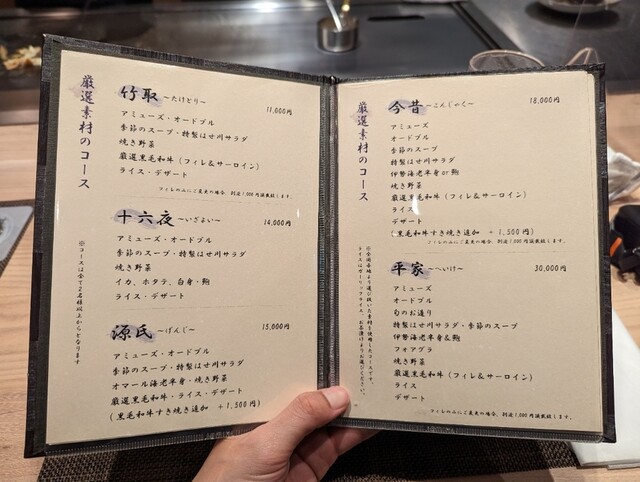 厳選素材のコース
竹取 ~たけとり~ 11,000円
アミューズ・オードブル
季節のスープ・特製はせ川サラダ
焼き野菜
厳選黒毛和牛（フィレ&サーロイン）
ライス・デザート
フィレのみにご変更の場合、別途1,000円頂戴致します。
十六夜 ~いざよい~ 14,000円
アミューズ・オードブル
季節のスープ・特製はせ川サラダ
焼き野菜
イカ、ホタテ、白身・鮑
ライス・デザート
源氏 ~げんじ~ 15,000円
アミューズ・オードブル
季節のスープ・特製はせ川サラダ
オマール海老半身・焼き野菜
厳選黒毛和牛・ライス・デザート
（黒毛和牛すき焼き追加 +1,500円）
※コースは全て2名様以上からとなります
厳選素材のコース
今昔 ~こんじゃく~ 18,000円
アミューズ
オードブル
季節のスープ
特製はせ川サラダ
伊勢海老半身or鮑
焼き野菜
厳選黒毛和牛（フィレ&サーロイン）
ライス
デザート
（黒毛和牛すき焼き追加 +1,500円）
フィレのみにご変更の場合、別途1,000円頂戴致します。
平家 ~へいけ~ 30,000円
アミューズ
オードブル
旬のお造り
特製はせ川サラダ・季節のスープ
伊勢海老半身&鮑
フォアグラ
焼き野菜
厳選黒毛和牛（フィレ&サーロイン）
ライス
デザート
フィレのみにご変更の場合、別途1,000円頂戴致します。
※全国各地より選び抜いた素材を使用したコースです。
ライスはガーリックライス、お茶漬けよりお選びください。